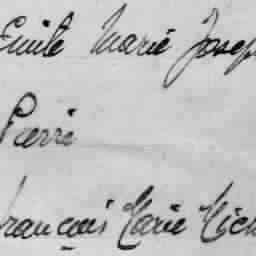 Emile Marie Josep
Pierre
François Marie Mich